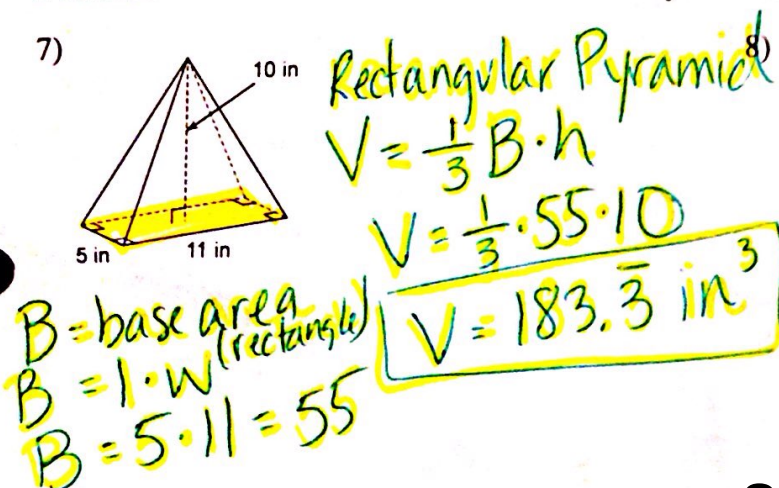 7)
10 in
5 in
11 in
Rectangular Pyramid
8)
V = 1/3 B·h
V = 1/3 · 55 · 10
V = 183.3̅ in³
B = base area
(rectangle)
B = l·w
B = 5·11 = 55